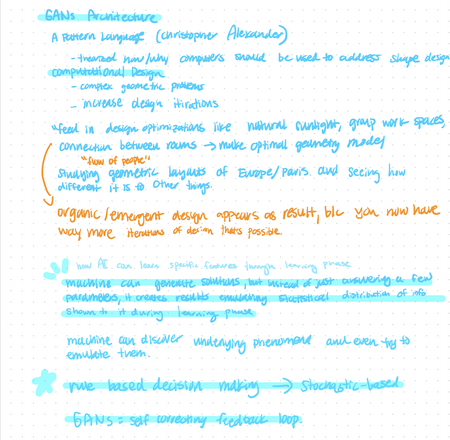 GANs Architecture
A Pattern Language (Christopher Alexander)
- theorized how/why computers should be used to address shape design
computational Design
- complex geometric problems
- increase design itirations
"feed in design optimizations like natural sunlight, group work spaces,
connection between rooms → make optimal geometry model
"flow of people"
studying geometric layouts of Europe/Paris. and seeing how
different it is to other things.
organic/emergent design appears as result, b/c you now have
way more iterations of design thats possible.
how AI can learn specific features though learning phase
machine can generate solutions, but instead of just answering a few
parameters, it creates results emulating statistical distribution of info
shown to it during learning phase
machine can discover underlying phenomena and even try to
emulate them.
rule based decision making → stochastic-based
GANs = self correcting feedback loop.